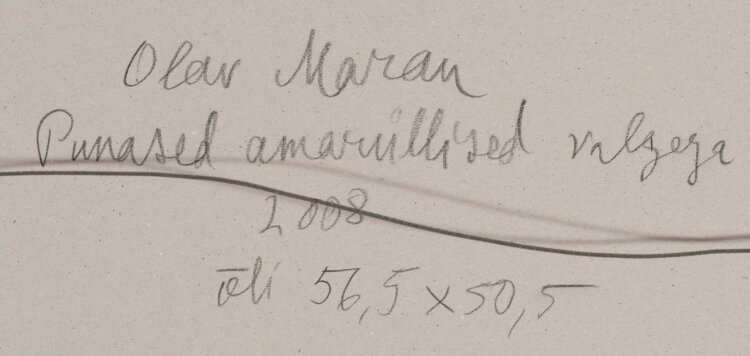 Olav Maran
Punased amarüllised valgega
2008
õli 56,5 x 50,5